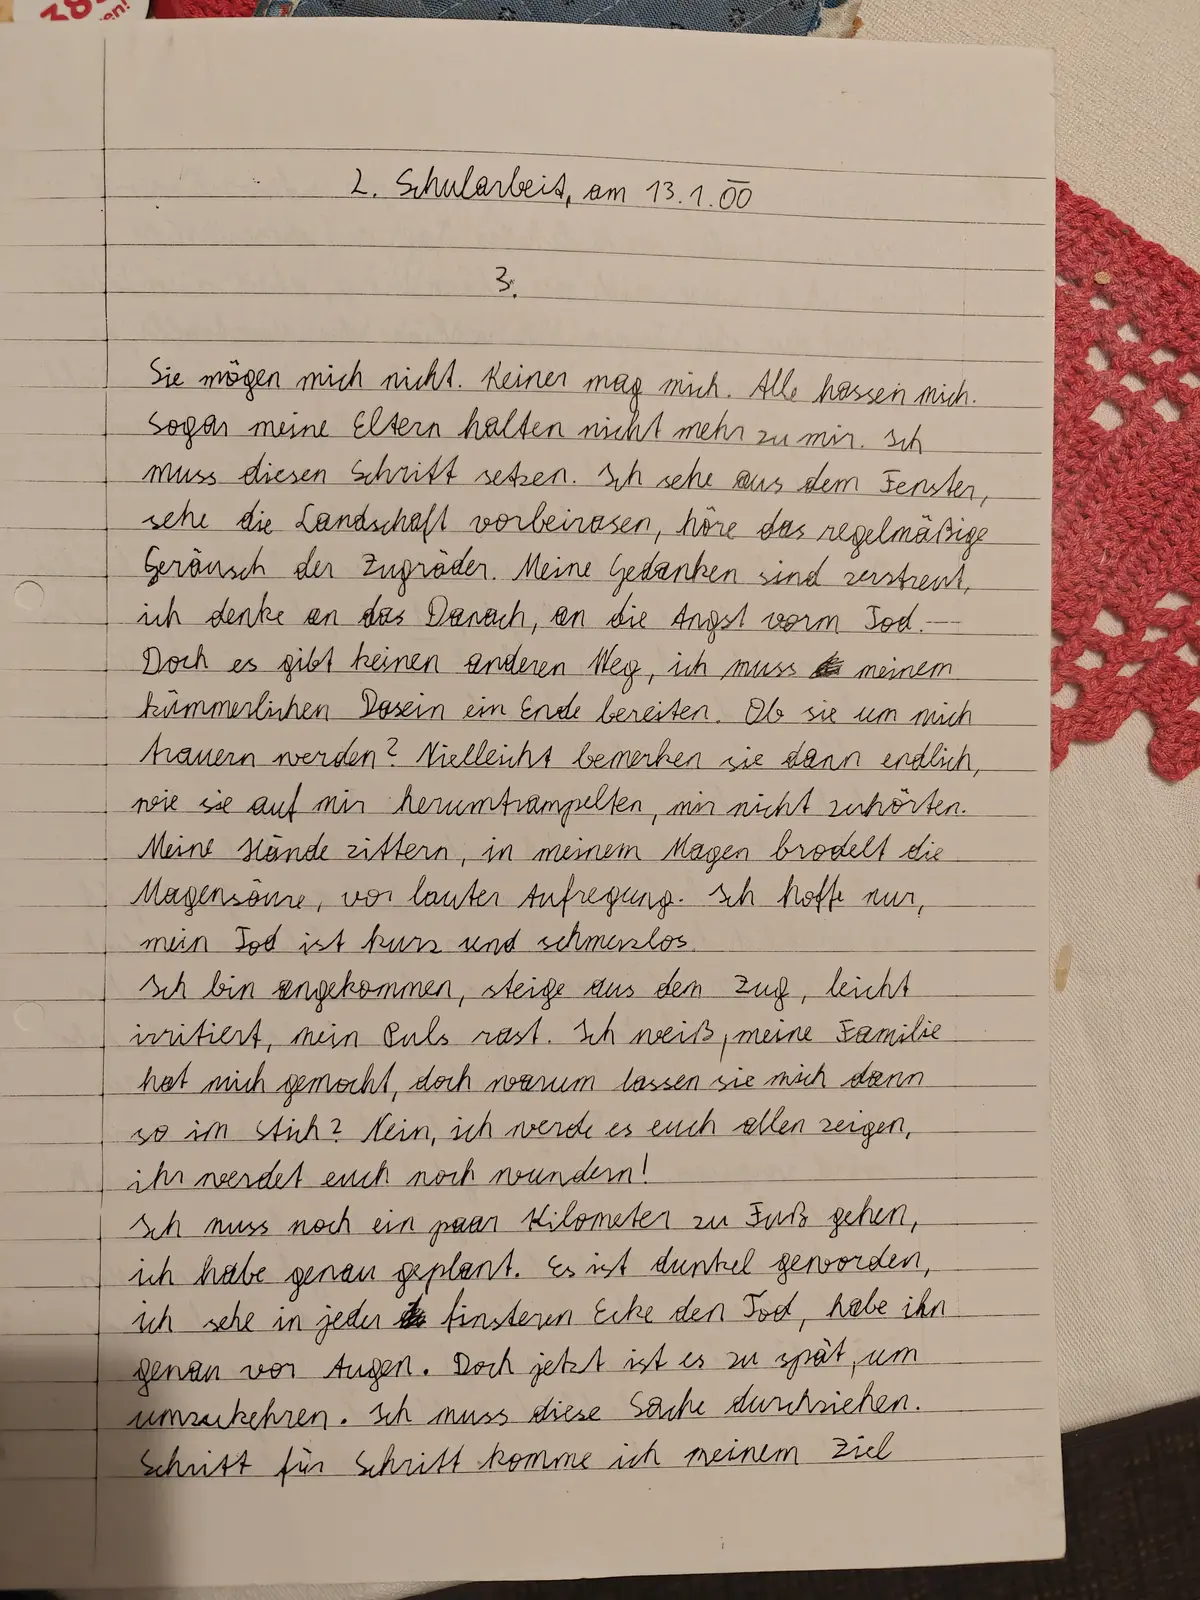 385
en!
2. Schularbeit, am 13.1.00
3.
Sie mögen mich nicht. Keiner mag mich. Alle hassen mich.
Sogar meine Eltern halten nicht mehr zu mir. Ich
muss diesen Schritt setzen. Ich sehe aus dem Fenster,
sehe die Landschaft vorbeirasen, höre das regelmäßige
Geräusch der Zugräder. Meine Gedanken sind zerstreut,
ich denke an das Danach, an die Angst vorm Tod.—
Doch es gibt keinen anderen Weg, ich muss meinem
kümmerlichen Dasein ein Ende bereiten. Ob sie um mich
trauern werden? Vielleicht bemerken sie dann endlich,
wie sie auf mir herumtrampelten, mir nicht zuhörten.
Meine Hände zittern, in meinem Magen brodelt die
Magensäure, vor lauter Aufregung. Ich hoffe nur,
mein Tod ist kurz und schmerzlos.
Ich bin angekommen, steige aus dem Zug, leicht
irritiert, mein Puls rast. Ich weiß, meine Familie
hat mich gemocht, doch warum lassen sie mich dann
so im Stich? Nein, ich werde es euch allen zeigen,
ihr werdet euch noch wundern!
Ich muss noch ein paar Kilometer zu Fuß gehen,
ich habe genau geplant. Es ist dunkel geworden,
ich sehe in jeder finsteren Ecke den Tod, habe ihn
genau vor Augen. Doch jetzt ist es zu spät, um
umzukehren. Ich muss diese Sache durchziehen.
Schritt für Schritt komme ich meinem Ziel